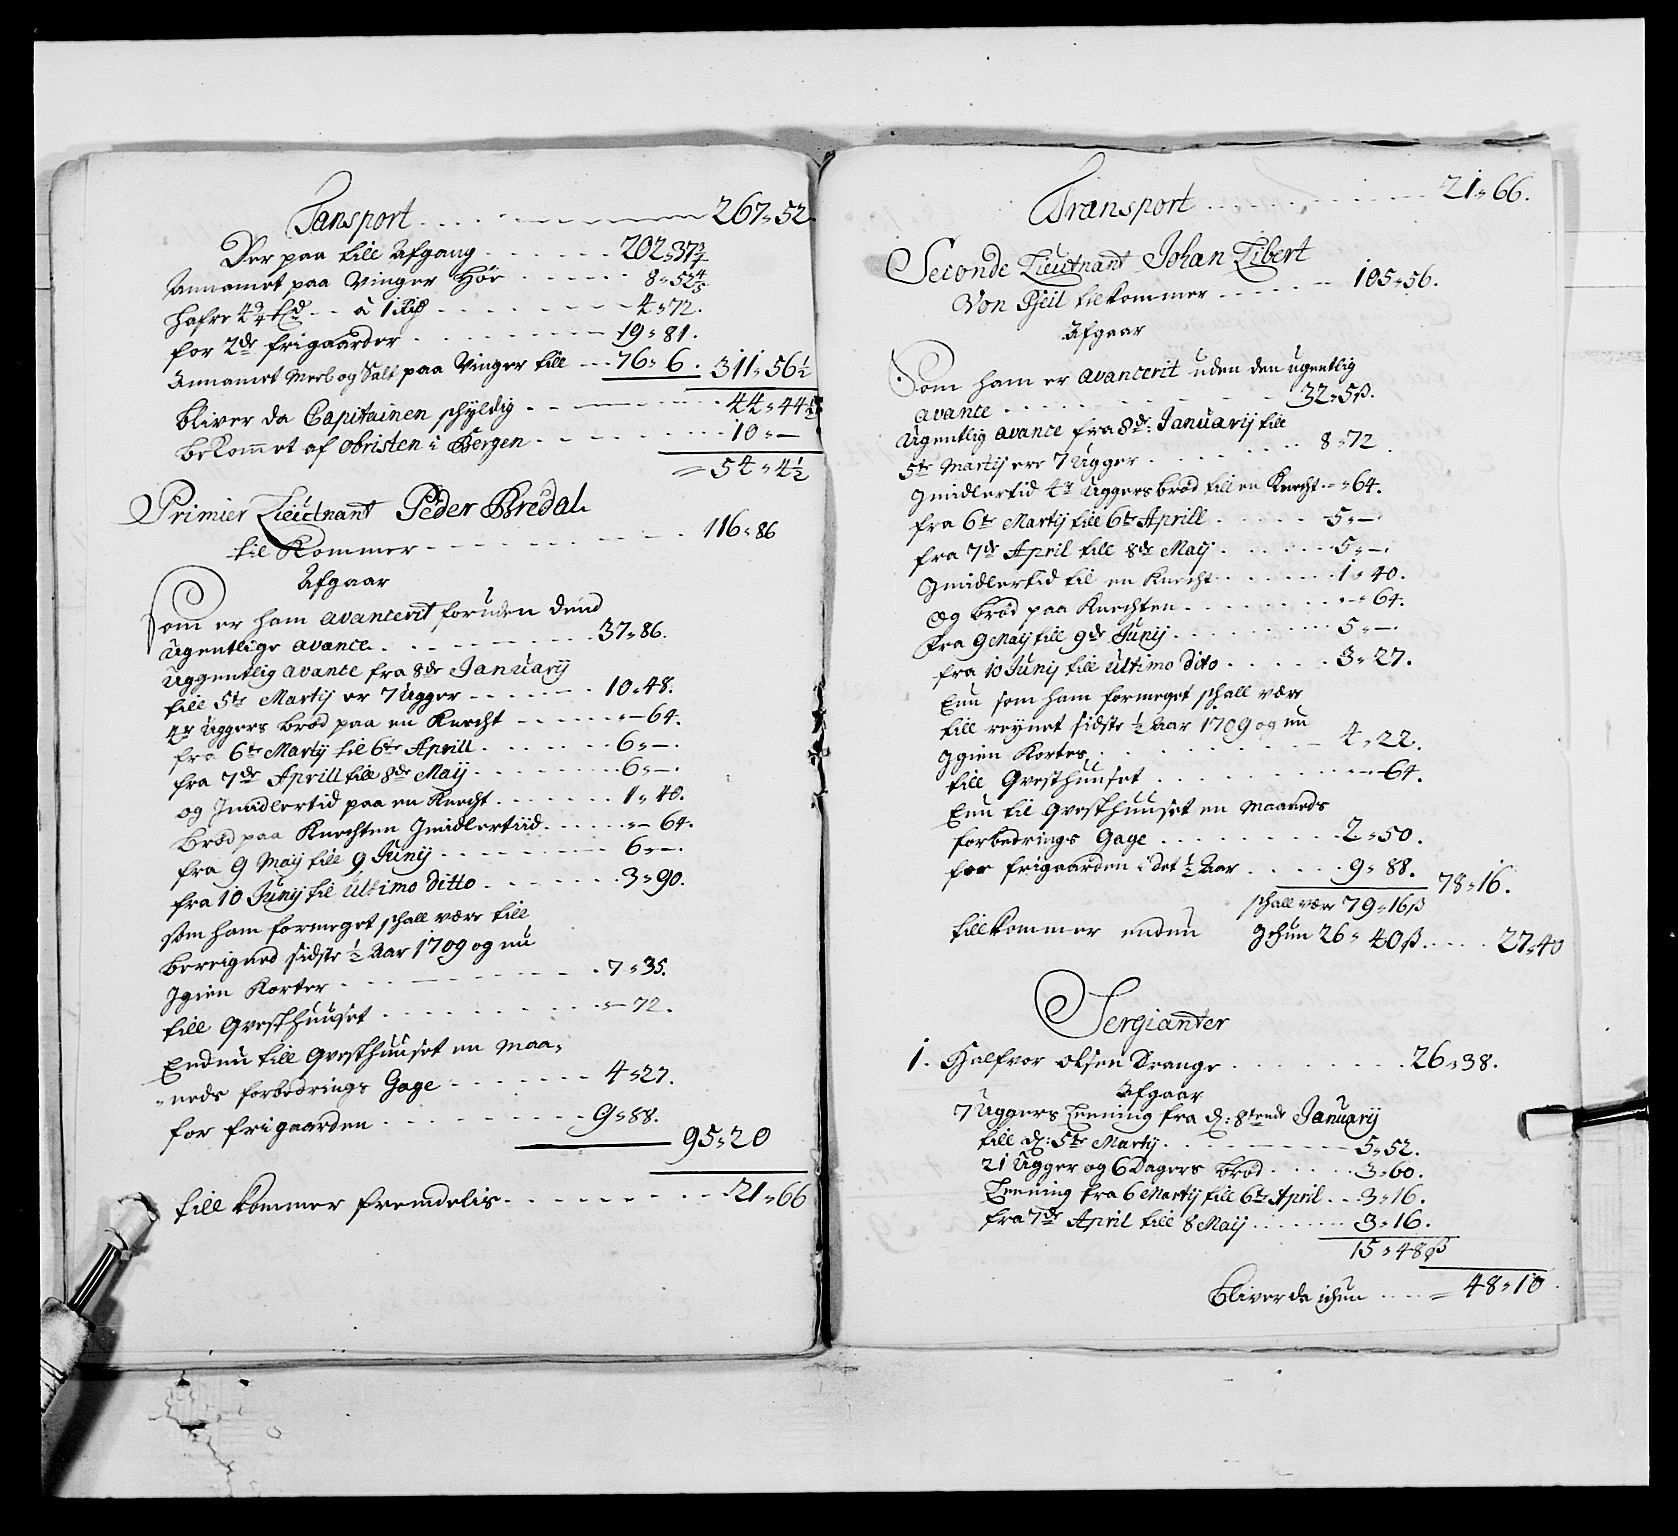 Tansport . . . . . 267 " 52
Der paa till Afgang . . . . . . 202 " 37 3/4
Annamet paa Vinger Höe . . . . . 8 " 52 4/5
hafre 4 3/4 . . à 1 Rd . . . . . . 4 " 72.
for 2de frigaarder . . . . . 19 " 81.
Annamet Meel og Salt paa Vinger till . . . 76 " 6. 311 " 56 1/2
bliver da Capitainen schyldig . . . . . 44 " 44 1/2
bekommet af obristen i Bergen . . . . . . . 10 " —
= 54 " 4 1/2
Primier Lieutnant Peder Bredal
til Kommer . . . . . . . 116 " 86
Afgaar
Som er ham avancerit foruden dend
Ugentlige avance . . . . . . 37 " 86.
Uggentlig avance fra 8de Januarij
till 5te Martij er 7 Ugger . . . . . 10 " 48.
4r Uggers brød paa en Knecht . . . . " — 64.
fra 6te Martij til 6te Aprill . . . . . 6 " —.
fra 7de Aprill till 8de Maij . . . . . 6 " —.
og Jmidlertid paa en Knecht . . . . . 1 " 40.
brød paa Knechten Jmidlertiid . . . . " — 64.
fra 9 Maij till 9 Junij . . . . . . 6 " —.
fra 10 Junij til Ultimo ditto . . . . . 3 " 90.
som ham formeget schall være till
bereigned sidste 1/2 Aar 1709 og nu
Jgien Korter . . . . . . . 7 " 35.
till Gresthuuset . . . . . . . " — 72.
Endnu till Gresthuuset en Maa"
"neds forbedrings Gage . . . . . 4 " 27.
for frigaarden . . . . . . 9 " 88.
95 " 20
till kommer fremdelis . . . . . . . 21 " 66
Transport . . . . . . . 21 " 66.
Seconde Lieutnant Johan Libert
Von Pfeil tilkommer . . . . . 105 " 56.
Afgaar
Som ham er avancerit uden den ugentlig
avance . . . . . . . 32 " 5 ß.
Ugentlig avance fra 8de: Januarij till
5te Martij ere 7 Ugger . . . . . . 8 " 72
Jmidlertid 4r Uggers brød till en Knecht . " 64.
fra 6te Martij till 6te Aprill . . . . . 5 " —.
fra 7de April till 8de Maij . . . . . 5 " —.
Jmidlertid til en Knecht . . . . . 1 " 40.
og brød paa Knechten . . . . . . " — 64.
fra 9 Maij till 9de Junij . . . . . . 5 " —.
fra 10 Junij till Ultimo dito . . . . . 3 " 27.
Enu som ham formeget schall være
till reynet sidste 1/2 Aar 1709 og nu
Jgien Kortes . . . . . . . 4 " 22.
till Gresthuuset . . . . . . " — 64.
Enu til Gresthuuset en Maaneds
forbedrings Gage . . . . . . 2 " 50.
for frigaarden i det 1/2 Aar . . . . . 9 " 88. 78 " 16.
schall være 79 " 16 ß
tillkommer endnu Jchun 26 " 40 ß . . . . . 27 " 40
Sergianter
1. Halfvor olsen Drange . . . . . . . . 26 " 38.
Afgaar
7 Uggers Leening fra d: 8tende Januarij
till d: 5te Martij . . . . . . 5 " 52.
21 Ugger og 6 Dagers brød . . . . . 3 " 60.
Leening fra 6 Martij till 6te April . . 3 " 16.
fra 7de April till 8 Maij . . . . . . 3 " 16.
15 " 48 ß
Bliver da ichun . . . . = 48 " 10